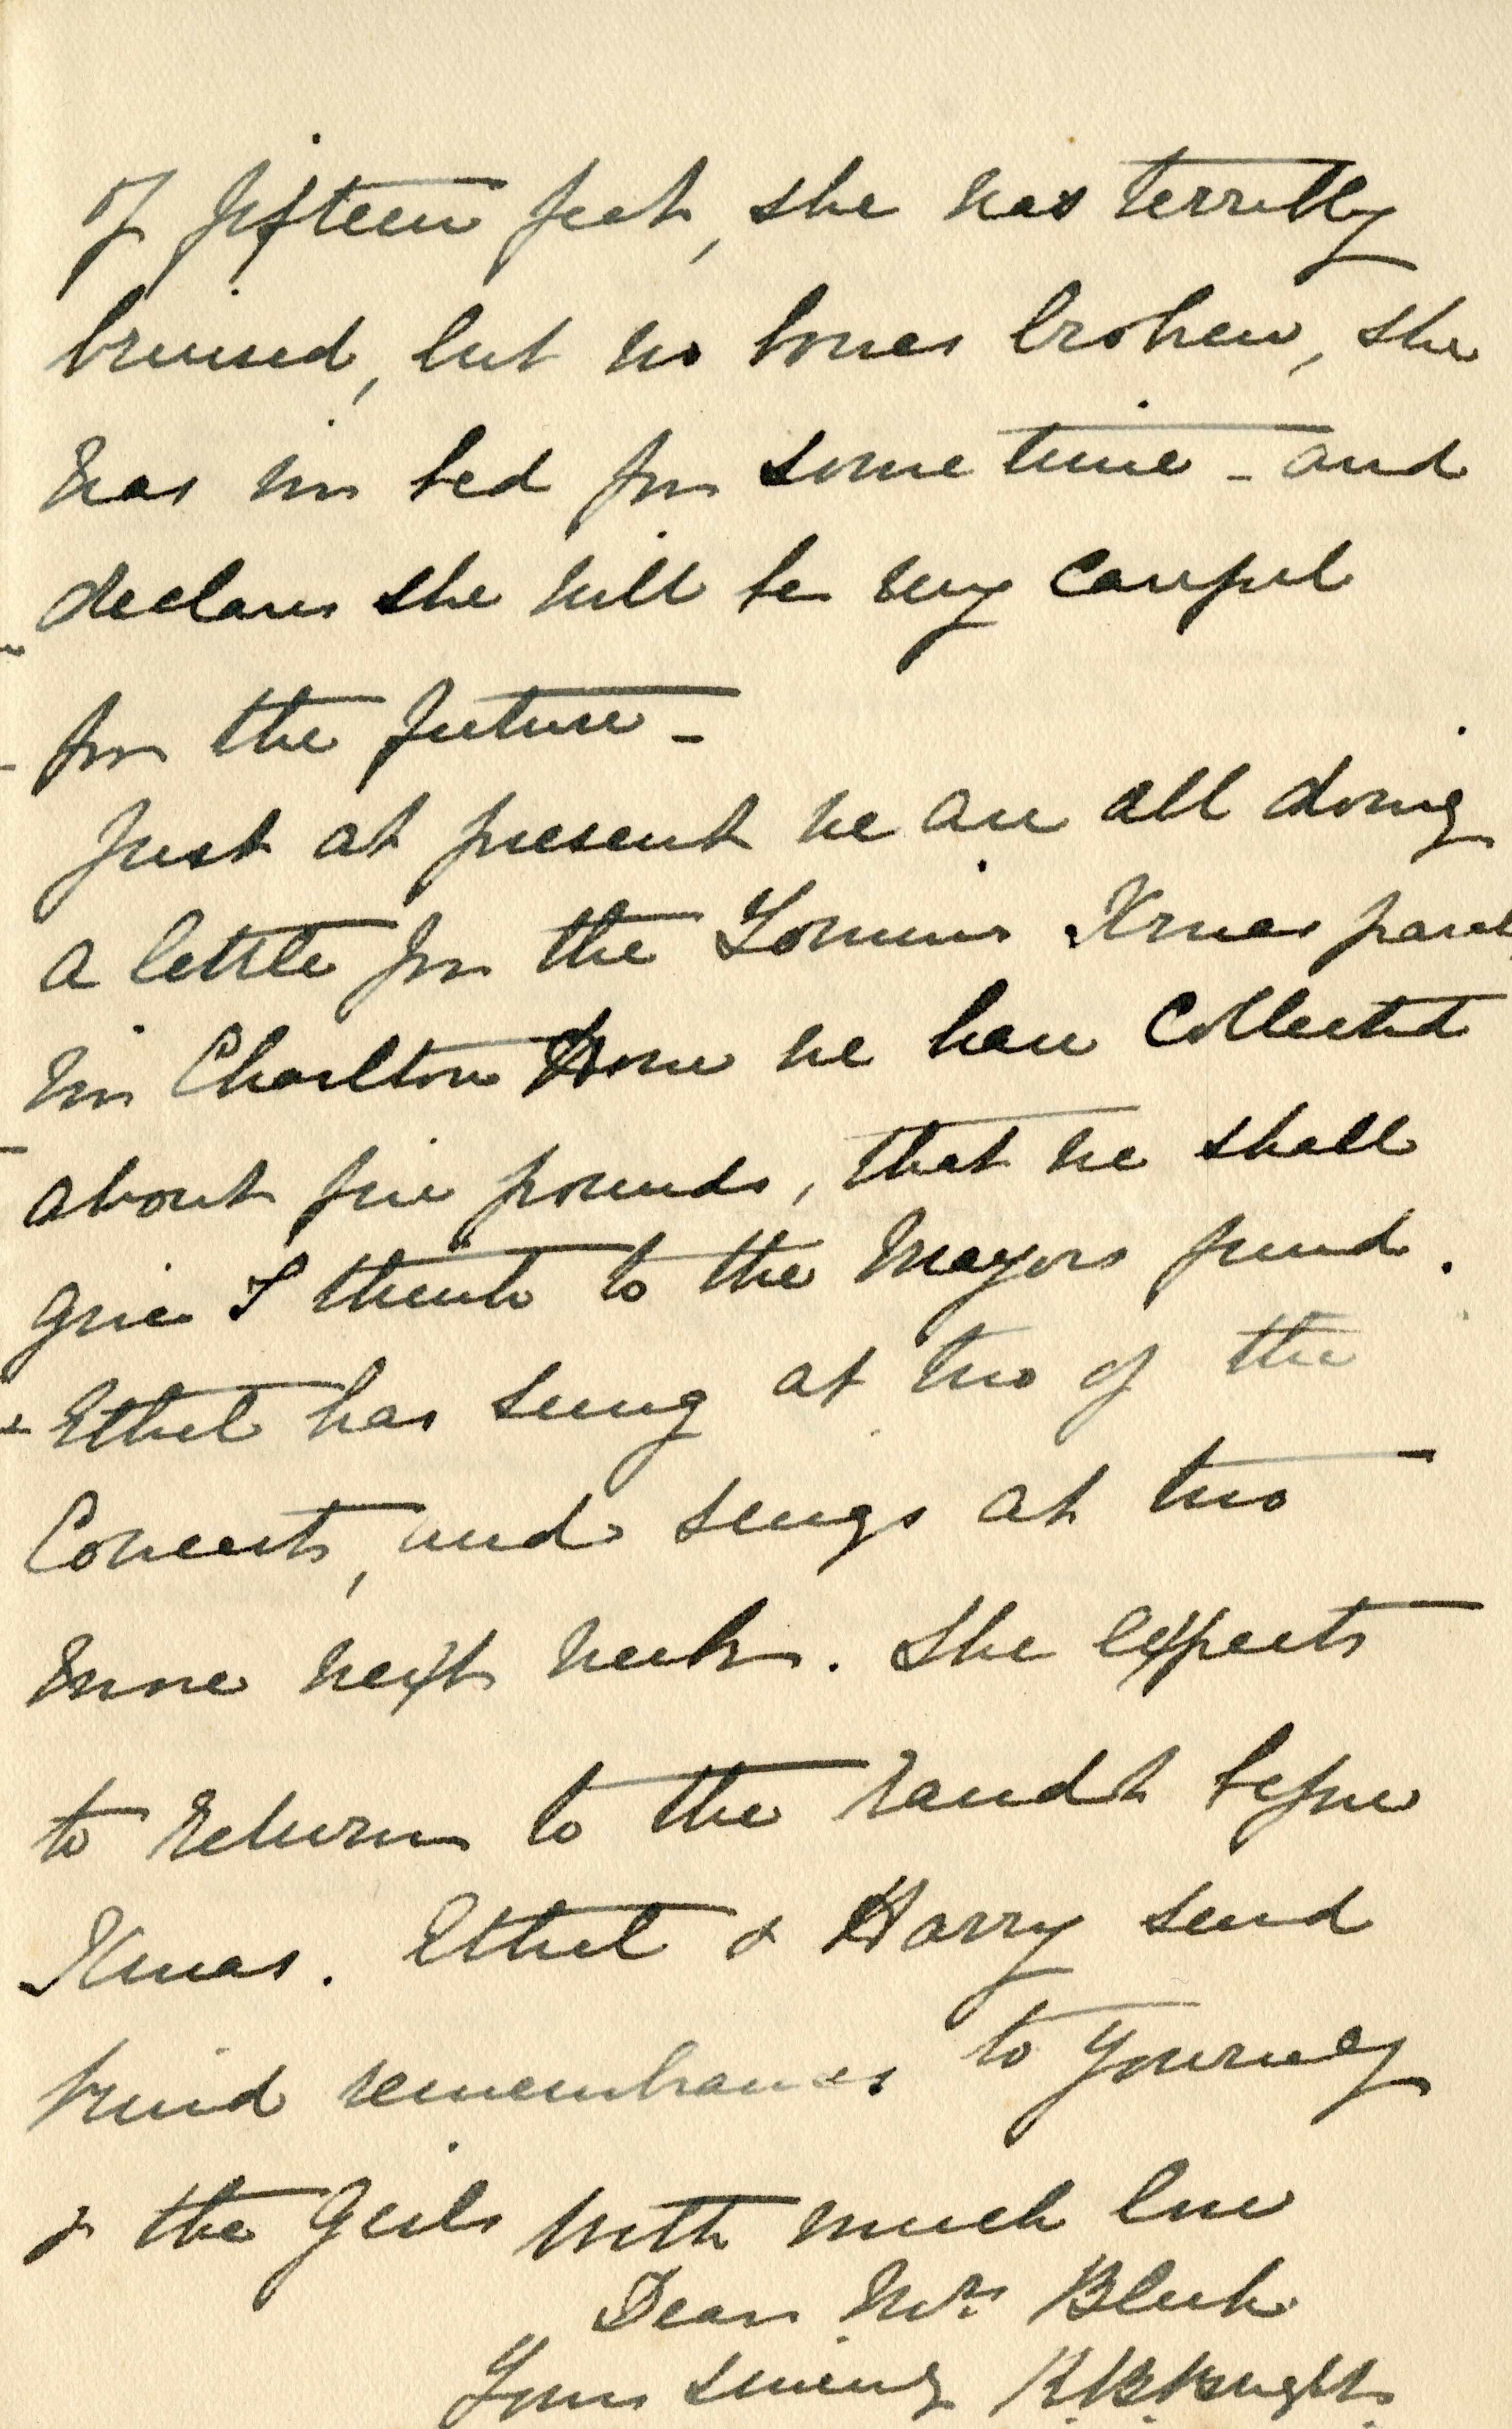 of fifteen feet, she was terribly
bruised, but no bones broken, she
was in bed for some time - and
declares she will be very careful
for the future -
Just at present we are all doing
a little for the Tommies Xmas parcel
in Charlton Home we have collected
about five pounds, that we shall
give I think to the Mayors fund.
Ethel has sung at two of the
Concerts, and sings at two
more next week. She expects
to return to the Randt before
Xmas. Ethel & Harry send
kind remembrances to yourself
& the Girls with much love
Dear Mrs Bleek
Yours sincerely